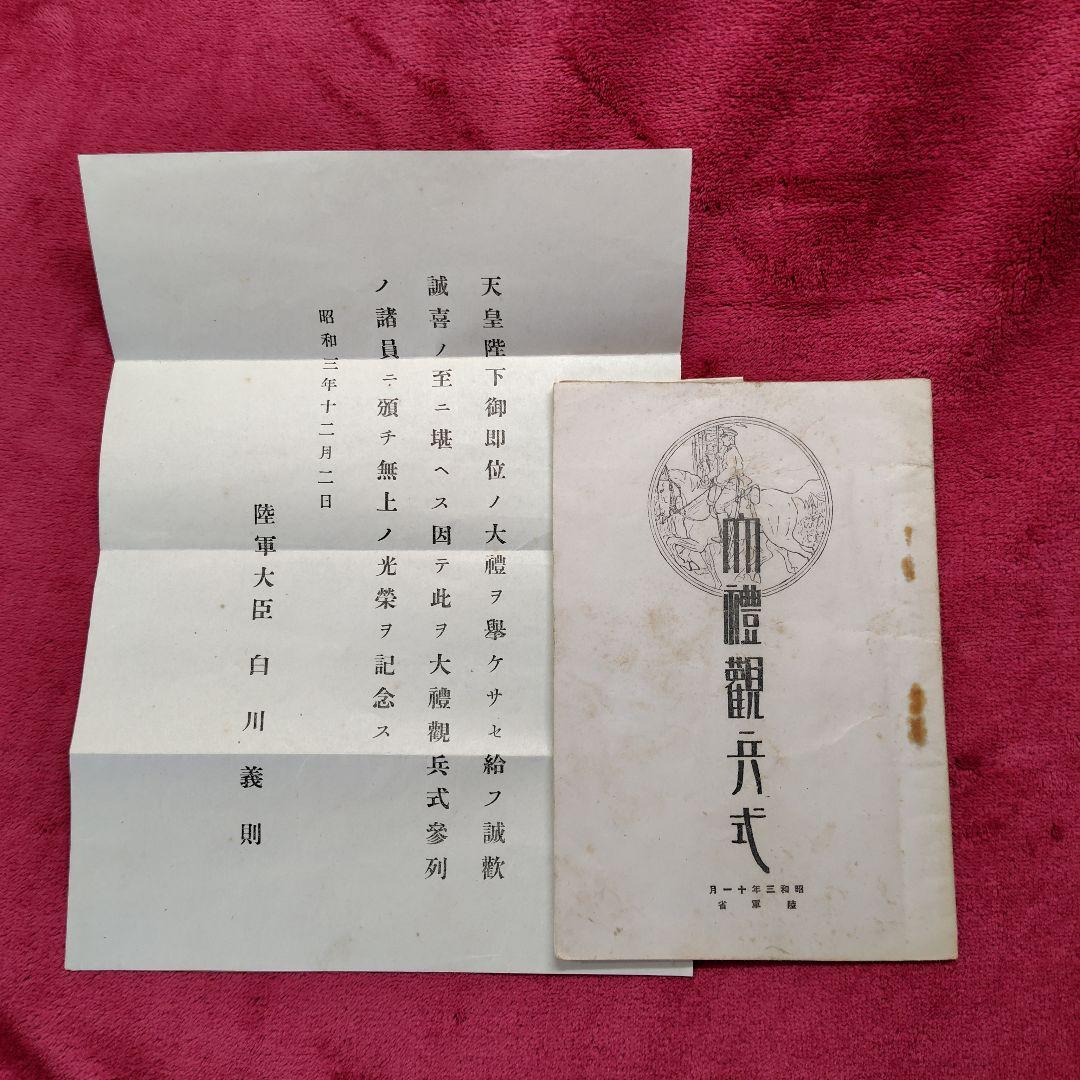 天皇陛下御即位ノ大禮ヲ擧ケサセ給フ誠歡
誠喜ノ至ニ堪ヘス因テ此ヲ大禮觀兵式參列
ノ諸員ニ頒チ無上ノ光榮ヲ記念ス
昭和三年十二月二日
陸軍大臣 白川義則
大禮觀兵式
昭和三年十一月
陸軍省